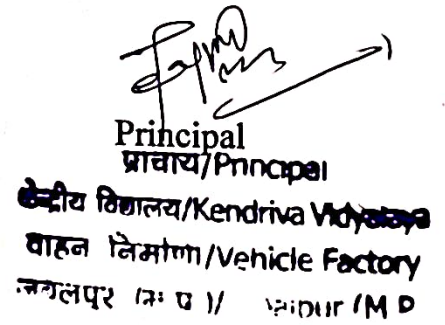 Principal
प्राचार्य/Principal
केन्द्रीय विद्यालय/Kendriya Vidyalaya
वाहन निर्माणी/Vehicle Factory
जबलपुर (म प्र)/ (M P